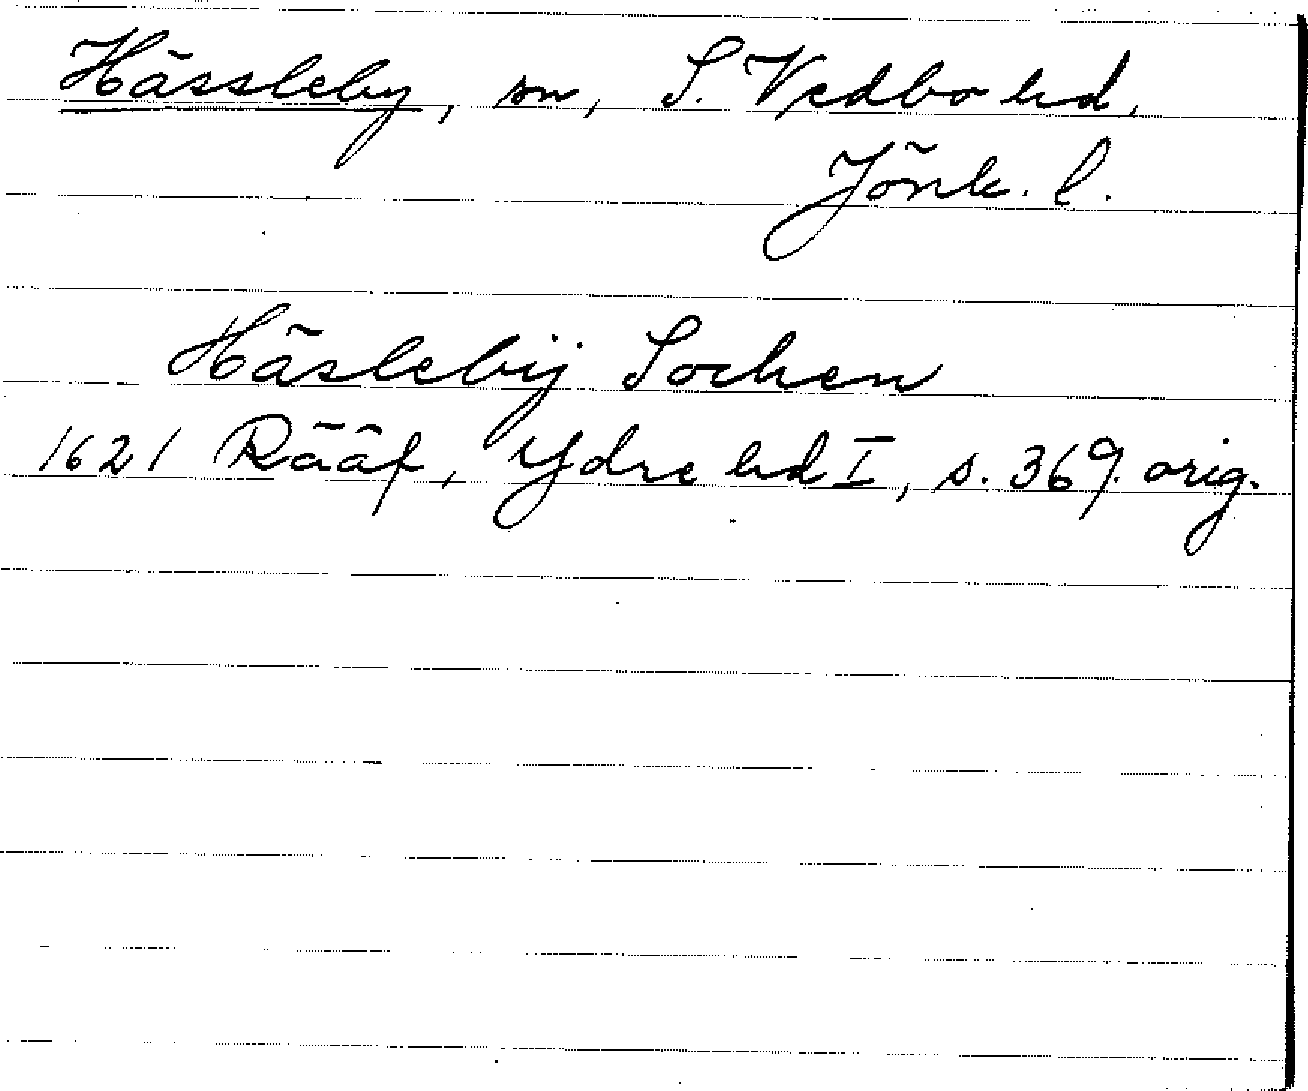 Hässleby, sn, S. Vedbo hd,
Jönk. l.
Häslebÿ Sochen
1621 Rääf, Ydre hd I, s. 369. orig.